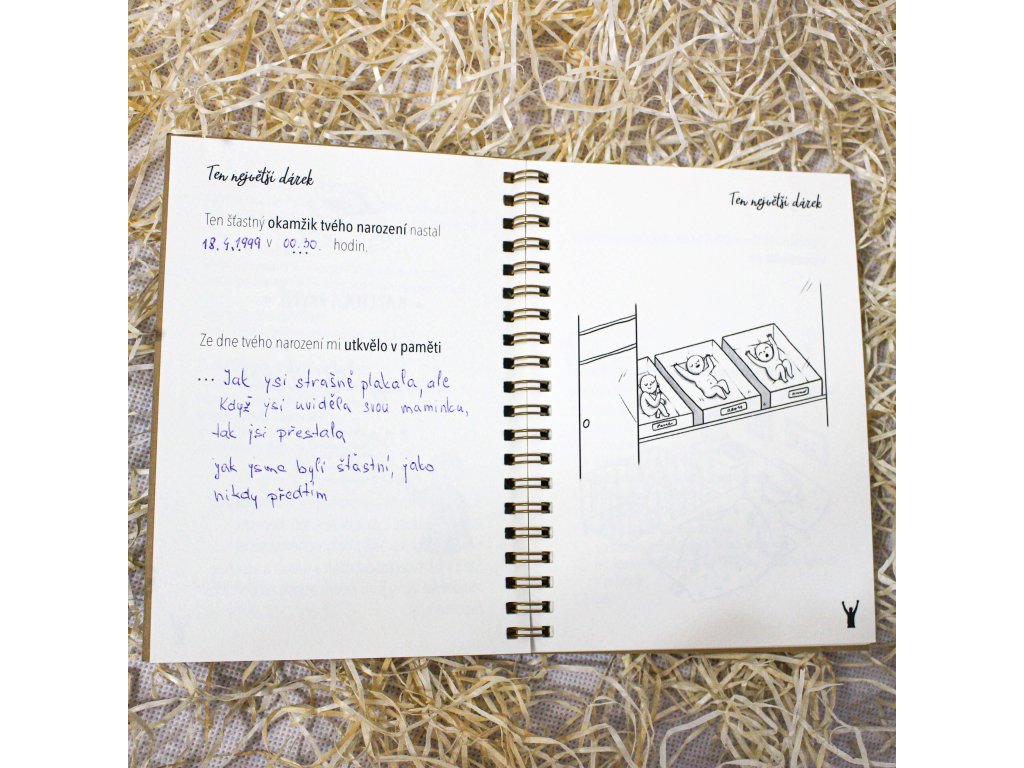 Ten největší dárek
Ten šťastný okamžik tvého narození nastal
18. 4. 1999 v 00.30. hodin.
Ze dne tvého narození mi utkvělo v paměti
... Jak jsi strašně plakala, ale
Když jsi uviděla svou maminku,
tak jsi přestala
jak jsme byli šťastní, jako
nikdy předtím
Ten největší dárek